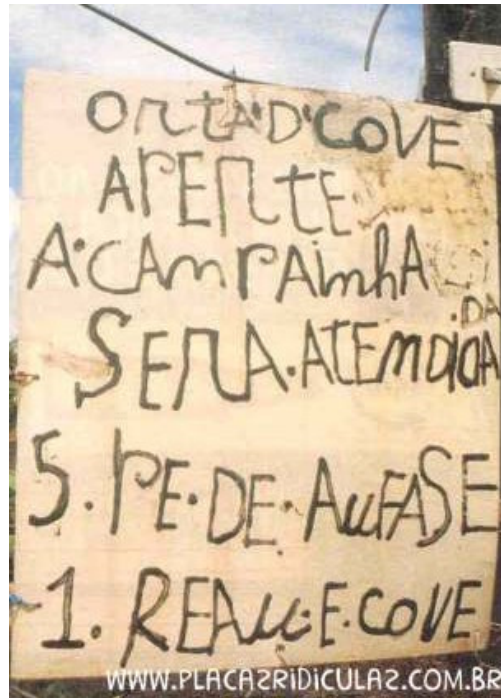 ORTA·D·COVE
APERTE
A·CAMPAINHA
SERA·ATEMDIDA
DA
5·PE·DE·AUFASE
1·REAU·E·COVE
WWW.PLACAZRIDICULAZ.COM.BR